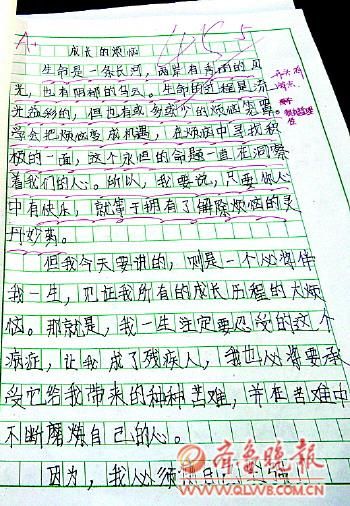 A+
成长的烦恼
生命是一条长河，两岸有秀丽的风
光，也有阴郁的乌云。生命的过程是流
光溢彩的，但也有或多或少的烦恼袭来。
学会把烦恼变成机遇，在烦恼中寻找积
极的一面，这个永恒的命题一直在洞察
着我们的心。所以，我要说，只要你心
中有快乐，就等于拥有了解除烦恼的灵
丹妙药。
但我今天要讲的，则是一个必将伴
我一生，见证我所有的成长历程的大烦
恼。那就是，我一生注定要忍受的这个
病症，让我成了残疾人，我也必将要承
受它给我带来的种种苦难，并在苦难中
不断磨炼自己的心。
因为，我必须
齐鲁晚报
WWW.QLWB.COM.CN